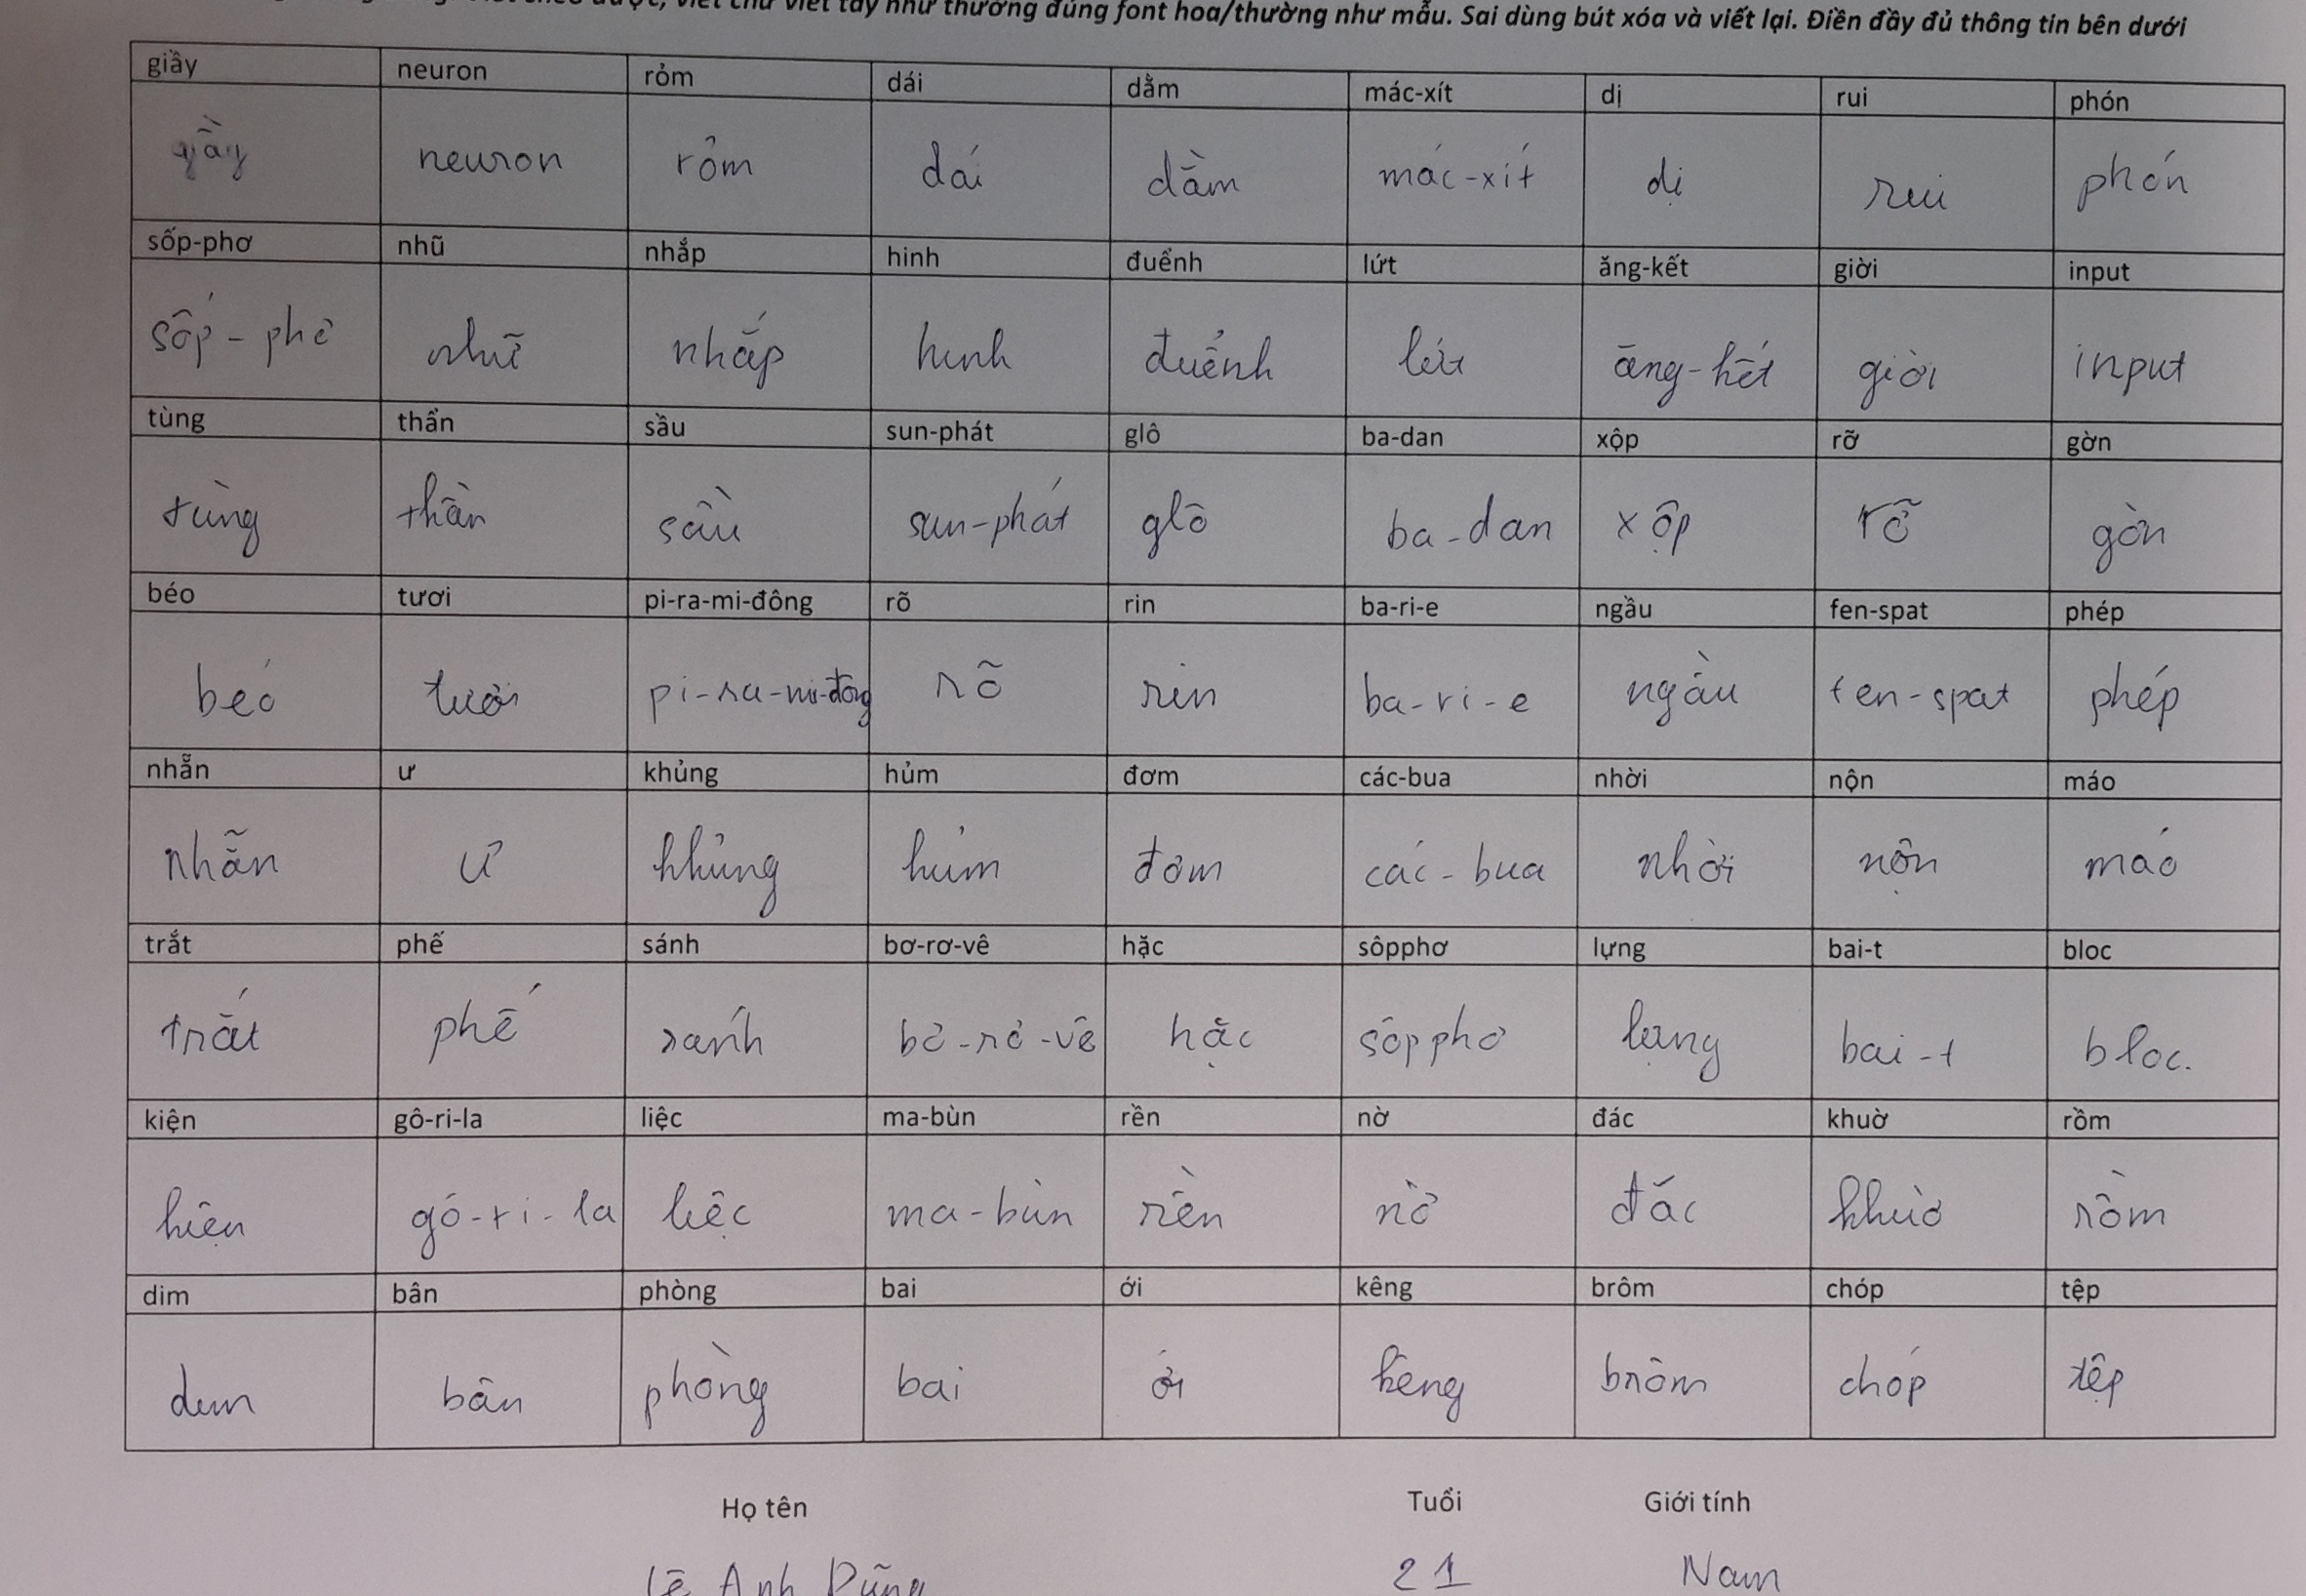 viết chữ viết tay như thường đúng font hoa/thường như mẫu. Sai dùng bút xóa và viết lại. Điền đầy đủ thông tin bên dưới
giầy neuron rỏm dái dằm mác-xít dị rui phón
giầy neuron rỏm dái dằm mác-xít dị rui phón
sốp-phơ nhũ nhắp hinh đuểnh lứt ăng-kết giời input
sốp-phơ nhũ nhắp hinh đuểnh lứt ăng-kết giời input
tùng thẩn sầu sun-phát glô ba-dan xộp rỡ gờn
tùng thẩn sầu sun-phát glô ba-dan xộp rỡ gờn
béo tươi pi-ra-mi-đông rõ rin ba-ri-e ngầu fen-spat phép
béo tươi pi-ra-mi-đông rõ rin ba-ri-e ngầu fen-spat phép
nhẵn ư khủng hủm đơm các-bua nhời nộn máo
nhẵn ư khủng hủm đơm các-bua nhời nộn máo
trắt phế sánh bơ-rơ-vê hặc sôpphơ lựng bai-t bloc
trắt phế sánh bơ-rơ-vê hặc sôpphơ lựng bai-t bloc.
kiện gô-ri-la liệc ma-bùn rền nờ đác khuờ rồm
kiện gô-ri-la liệc ma-bùn rền nờ đác khuờ rồm
dim bân phòng bai ới kêng brôm chóp tệp
dim bân phòng bai ới kêng brôm chóp tệp
Họ tên Tuổi Giới tính
Lê Anh Dũng 21 Nam